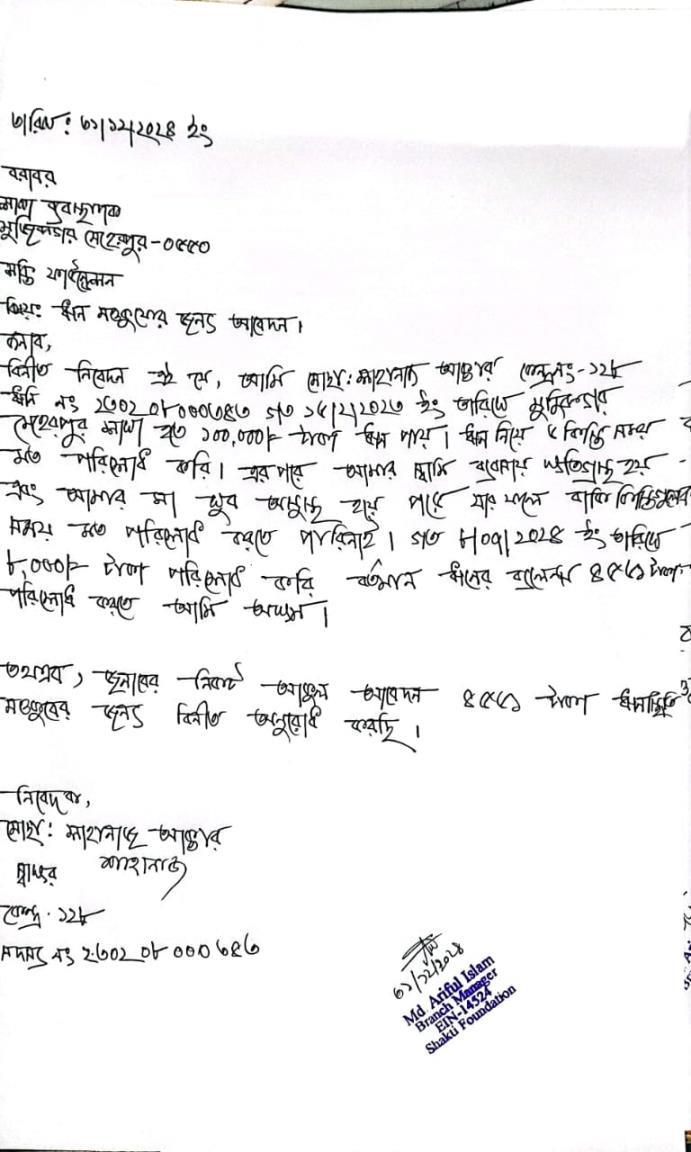 তারিখ: ৩১/১২/২০২৪ ইং
বরাবর
শাখা ব্যবস্থাপক
মুজিবনগর মেহেরপুর-০৫৫০
শক্তি ফাউন্ডেশন
বিষয়: ঋন মওকুফের জন্য আবেদন।
জনাব,
বিনীত নিবেদন এই যে, আমি মোছা: শাহানাজ আক্তার কেন্দ্র নং-১২৮
ঋনি নং ২৩০২০৮০০০৬৪৩ গত ১৫/২/২০২৩ ইং তারিখে মুজিবনগর
মেহেরপুর শাখা হতে ১০০,০০০/- টাকা ঋন পায়। ঋন নিয়ে ৫ কিস্তি সময়
মত পরিশোধ করি। এরপরে আমার স্বামি ব্যবসায় ক্ষতিগ্রস্থ হয়
এবং আমার মা খুব অসুস্থ হয়ে পরে যার ফলে বাকি কিস্তিগুলো
সময় মত পরিশোধ করতে পারিনাই। গত ৮/০৭/২০২৪ ইং তারিখে
৮,০০০/- টাকা পরিশোধ করি বর্তমান ঋনের ব্যালেন্স ৪৫৬১ টাকা
পরিশোধ করতে আমি অক্ষম।
অতএব, জনাবের নিকট আকুল আবেদন ৪৫৬১ টাকা ঋনস্থিতি
মওকুফের জন্য বিনীত অনুরোধ করছি।
নিবেদক,
মোছা: শাহানাজ আক্তার
স্বাক্ষর শাহানাজ
কেন্দ্র-১২৮
সদস্য নং ২৩০২০৮০০০৬৪৩
৩১/১২/২০২৪
Md. Ariful Islam
Branch Manager
EIN-14324
Shakti Foundation